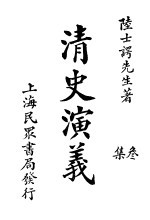 陸士諤先生著
清史演義
叁集
上海民眾書局發行